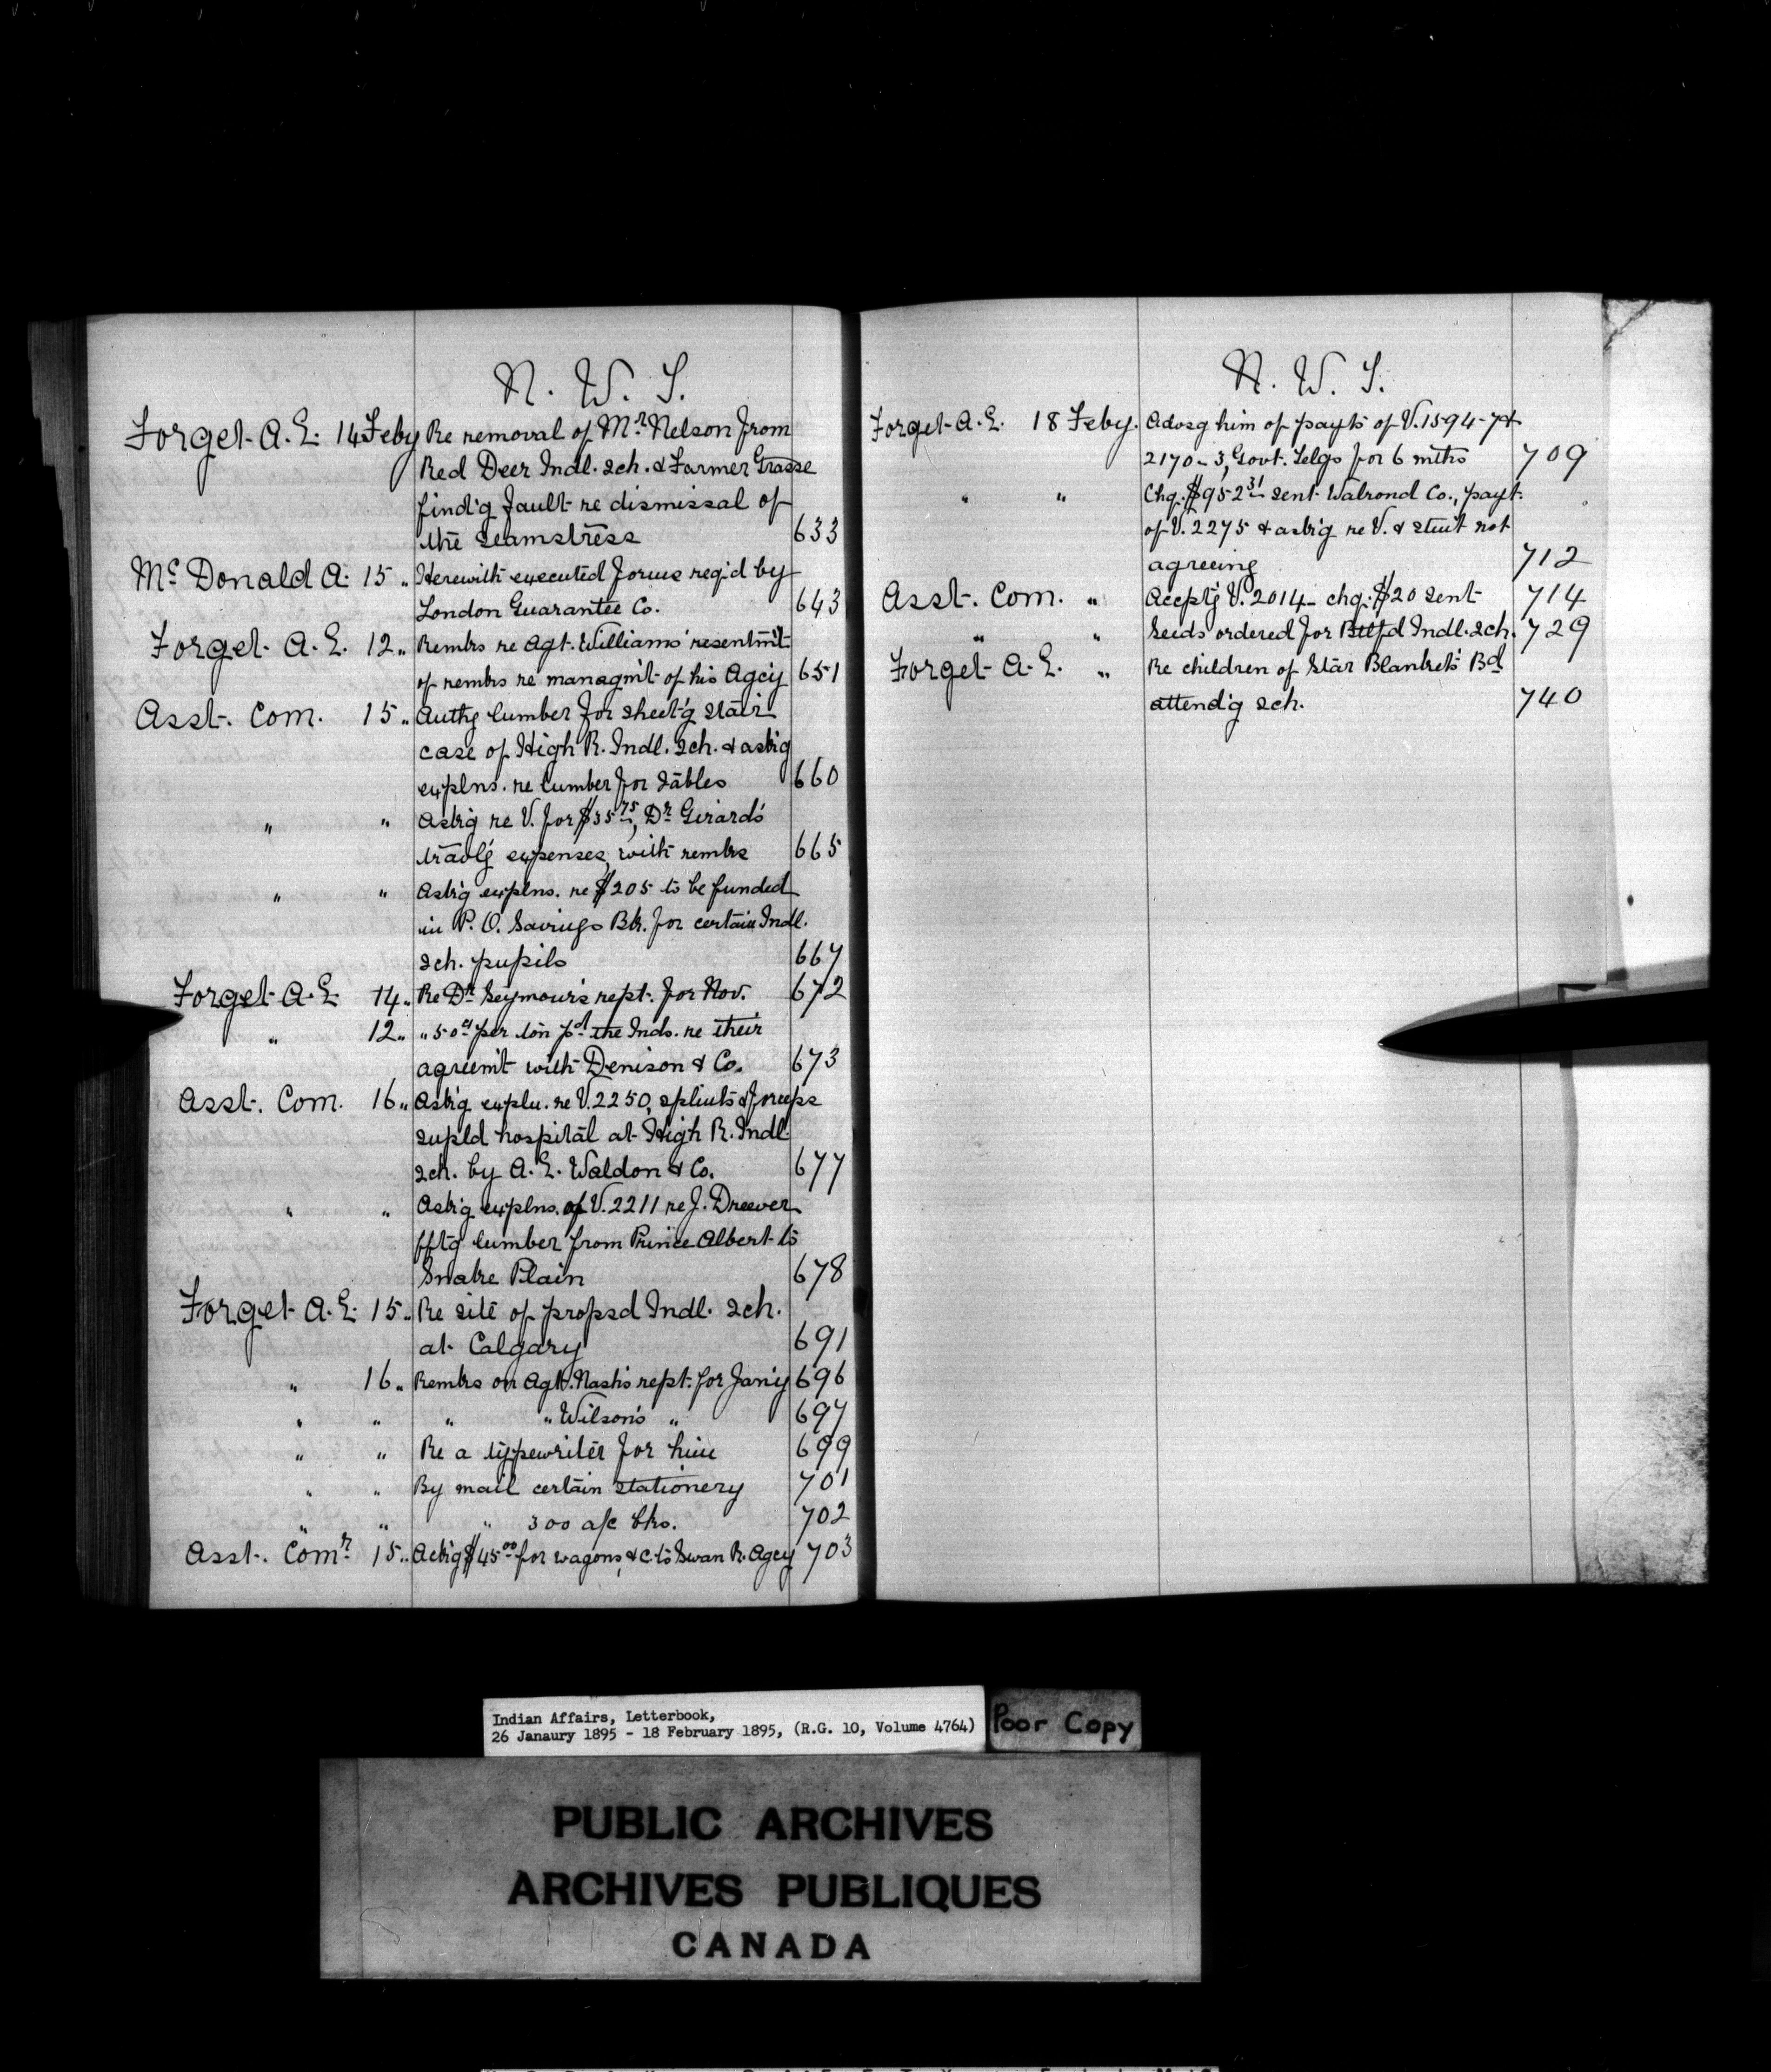 N. W. T.
Forget A. E. 14 Feby Re removal of Mr Nelson from
Red Deer Indl. Sch. & Farmer Grasse
find'g fault re dismissal of
the seamstress 633
Mc Donald A. 15 " Herewith executed forms req'd by
London Guarantee Co. 643
Forget A. E. 12 " Remks re Agt. Williams' resentm't
of remks re managm't of his Agcy 651
Asst. Com. 15 " Authg lumber for sheet'g stair
case of High R. Indl. Sch. & ask'g
explns. re lumber for tables 660
" " Ask'g re V. for $35 75, Dr Girard's
travl'g expenses, with remks 665
" " Ask'g explns. re $205 to be funded
in P. O. Savings Bk. for certain Indl.
Sch. pupils 667
Forget A. E. 14 " Re Dr Seymour's rept. for Nov. 672
" 12 " " 50 cts per ton pd the Inds. re their
agreem't with Denison & Co. 673
Asst. Com. 16 " Ask'g expln. re V. 2250, splints & forceps
supld hospital at High R. Indl.
Sch. by A. E. Waldon & Co. 677
" " Ask'g explns. of V. 2211 re J. Dreever
frtg lumber from Prince Albert to
Snake Plain 678
Forget A. E. 15 " Re site of propsd Indl. Sch.
at Calgary 691
" 16 " Remks on Agt. Nash's rept. for Jan'y 696
" " " " Wilson's " 697
" " Re a typewriter for him 699
" " By mail certain stationery 701
" " " 300 a/c bks. 702
Asst. Comr 15 " Ack'g $45 00 for wagons, &c. to Swan R. Agcy 703
N. W. T.
Forget A. E. 18 Feby. Advsg him of payts of V. 1594-7 &
2170-3, Govt. Telgs for 6 mths 709
" " Chq. $952 31 sent Walrond Co., payt.
of V. 2275 & ask'g re V. & stmt not
agreeing 712
Asst. Com. " Accpt'g V. 2014 - chq. $20 sent 714
" " Seeds ordered for Btlfd Indl. Sch. 729
Forget A. E. " Re children of Star Blanket's Bd
attend'g sch. 740
Indian Affairs, Letterbook,
26 Janaury 1895 - 18 February 1895, (R.G. 10, Volume 4764)
Poor Copy
PUBLIC ARCHIVES
ARCHIVES PUBLIQUES
CANADA